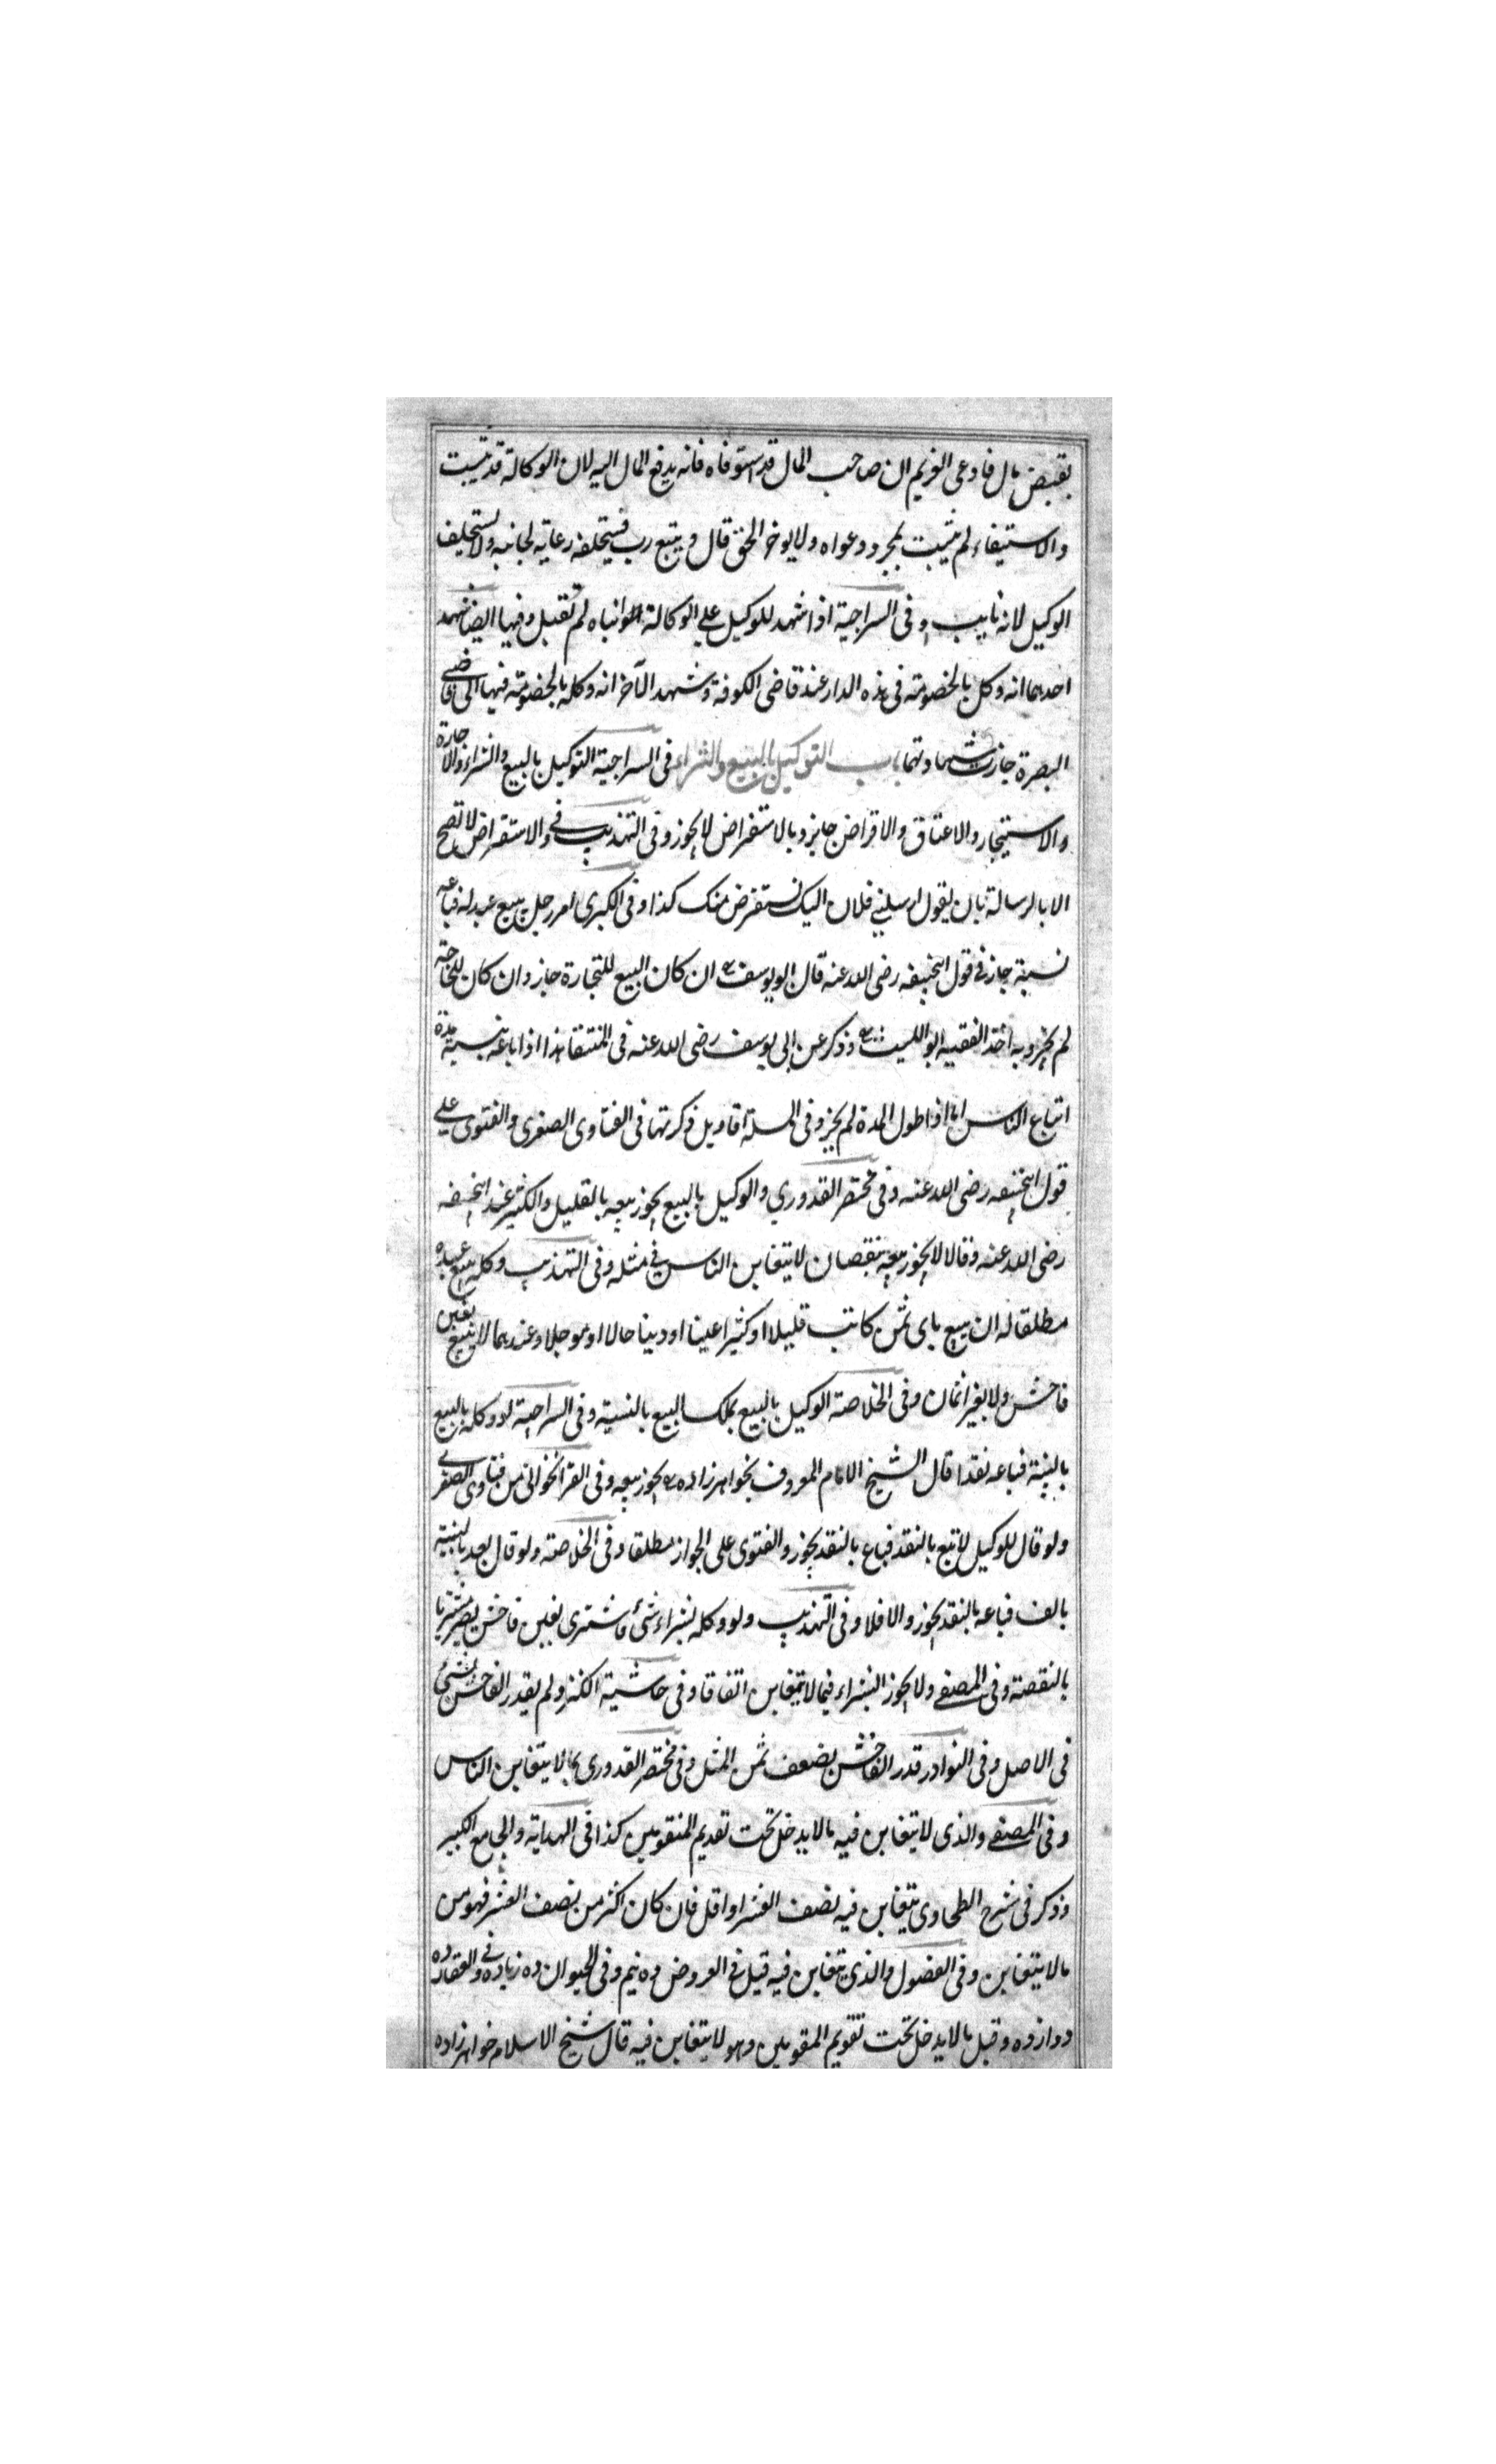 بقبض مال فادعى الغريم ان صاحب المال قد استوفاه فانه يدفع المال اليه لان الوكالة قد تثبت
والاستيفاء لم يثبت بمجرد دعواه ولا يوخر الحق قال ويتبع رب فيستحلفه رعاية لجانبه ولا يستحلف
الوكيل لانه نايب وفى السراجية اذا شهد للوكيل على الوكالة ابناه لم تقبل وفيها ايضا شهد
احدهما انه وكل بالخصومة فى هذه الدار عند قاضى الكوفة وشهد الآخر انه وكله بالخصومة فيها الى قاضى
البصرة جازت شهادتهما باب التوكيل بالبيع والشراء فى السراجية التوكيل بالبيع والشراء والاجارة
والاستيجار والاعتاق والاقراض جايز وبالاستقراض لا يجوز وفى التهذيب فى والاستقراض لا تصح
الا بالرسالة بان يقول ارسلنى فلان اليك نستقرض منك كذا وفى الكبرى امر رجل ببيع عبد له فباعه
نسية جاز فى قول ابيحنيفه رضى الله عنه قال ابو يوسف رح ان كان البيع للتجارة جاز وان كان للحاجة
لم يجز وبه اخذ الفقيه ابو الليث رح وذكر عن ابى يوسف رضى الله عنه فى المنتقا هذا اذا باعه بنسية مدة
اتباع الناس اما اذا طول المدة لم يجز وفى المسلة اقاويل ذكرتها فى الفتاوى الصغرى والفتوى على
قول ابيحنيفه رضى الله عنه وفى مختصر القدورى والوكيل بالبيع يجوز بيعه بالقليل والكثير عند ابيحنيفه
رضى الله عنه وقالا لا يجوز بيعه بنقصان لا يتغابن الناس فى مثله وفى التهذيب وكله ببيع عبده
مطلقا له ان يبيع باى ثمن كانت قليلا او كثيرا عينا او دينا حالا او موجلا وعندهما لا يبيع بغبن
فاحش ولا بغير اثمان وفى الخلاصة الوكيل بالبيع يملك البيع بالنسية وفى السراجية لو وكله بالبيع
بالنسية فباعه نقدا قال الشيخ الامام المعروف بخواهرزاده رح يجوز بيعه وفى القراخوانى من فتاوى الصغرى
ولو قال للوكيل لا تبع بالنقد فباع بالنقد يجوز والفتوى على الجواز مطلقا وفى الخلاصة ولو قال بعه بالنسية
بالف فباعه بالنقد يجوز والا فلا وفى التهذيب ولو وكله بشراء شئ فاشترى بغبن فاحش يصير مشتريا
بالنقصة وفى المصفى ولا يجوز الشراء فيما لا يتغابن اتفاقا وفى حاشية الكنز ولم يقدر الفاحش بشئ
فى الاصل وفى النوادر قدر الفاحش بضعف ثمن المثل وفى مختصر القدورى بما لا يتغابن الناس
وفى المصفى والذى لا يتغابن فيه ما لا يدخل تحت تقديم المتقومين كذا فى الهداية والجامع الكبير
وذكر فى شرح الطحاوى يتغابن فيه نصف العشر او اقل فان كان اكثر من نصف العشر فهو من
ما لا يتغابن وفى الفصول والذى يتغابن فيه قيل فى العروض ده نيم وفى الحيوان ده زياده وفى العقار ده
دوازده وقيل ما لا يدخل تحت تقويم المقومين وهو لا يتغابن فيه قال شيخ الاسلام خواهرزاده